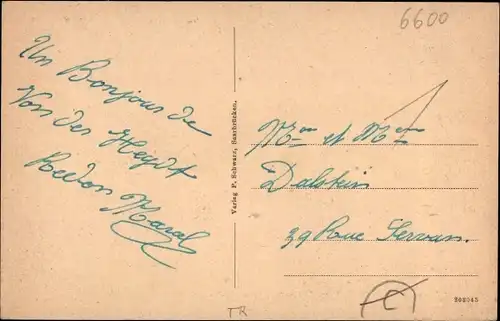 6600
Un Bonjour de
Von der Heydt
Redon Marcel
Verlag P. Schwarz, Saarbrücken.
Mr et Mme
Dalstein
39 Rue Servan.
C
TR
302045